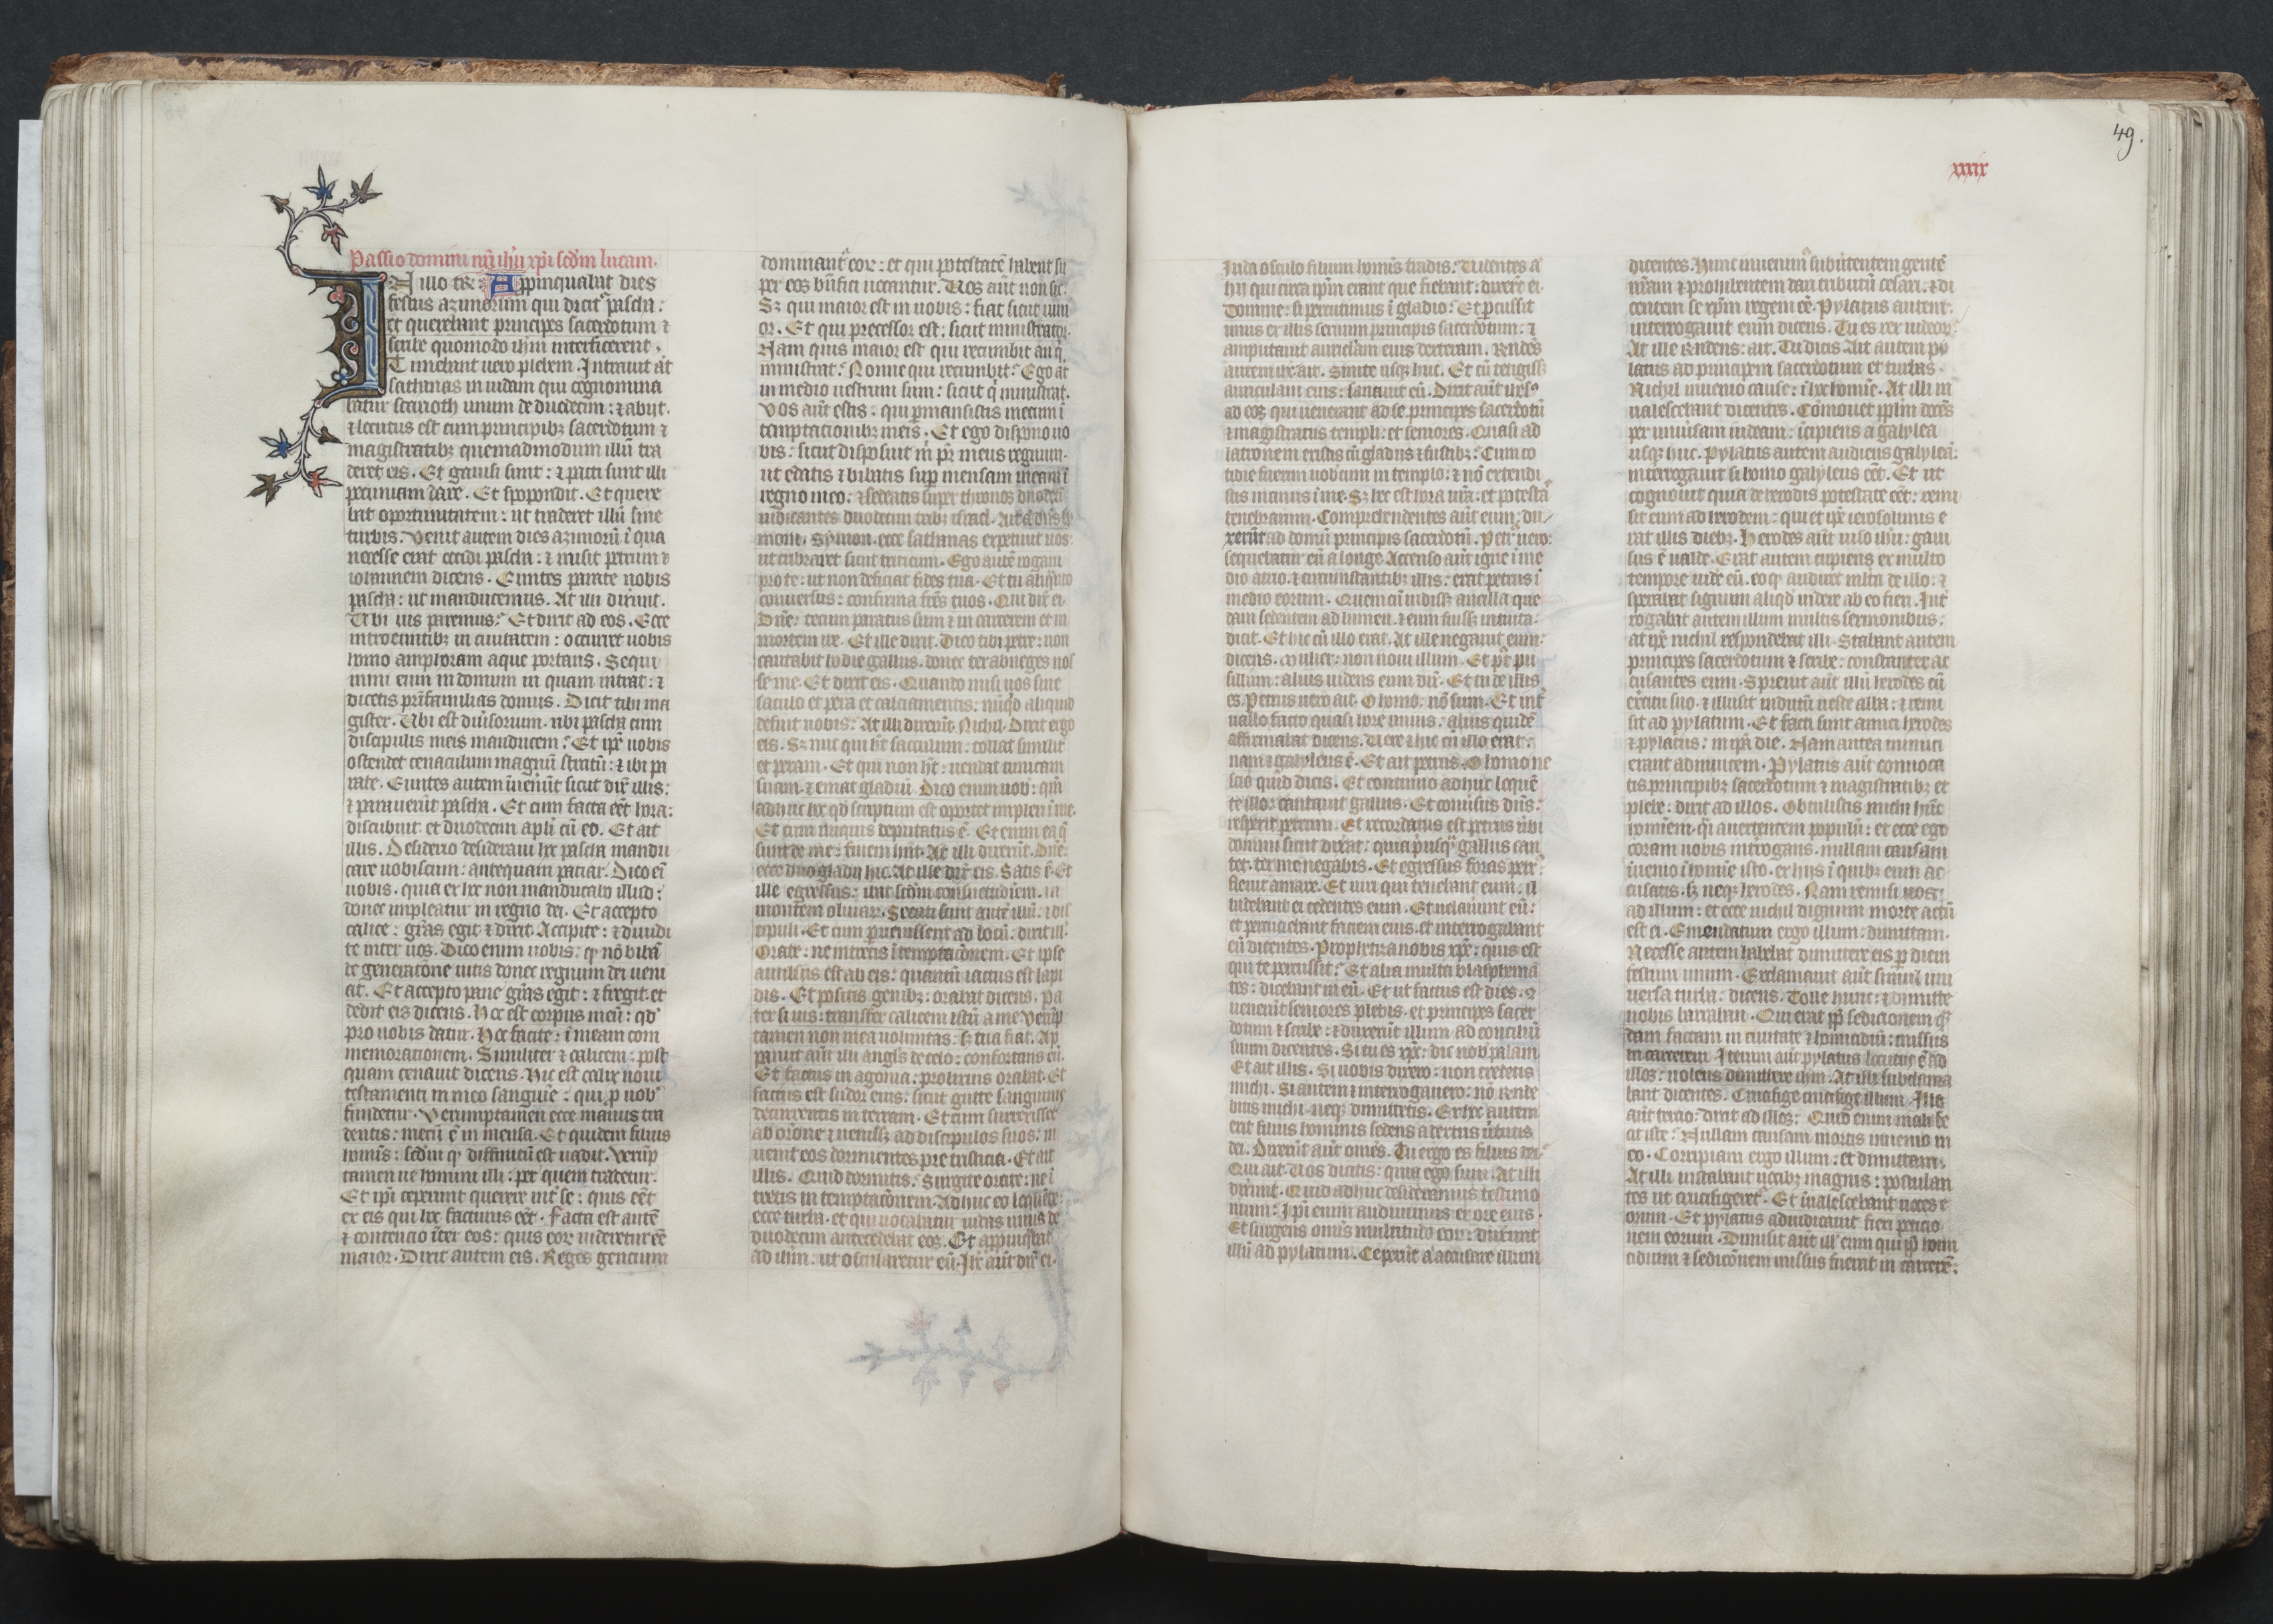 Passio domini nr̄i ihū xp̄i scdm̄ lucam.
In illo tꝑe: Appinquabat dies
festus azimorum qui dicit᷑ pascha:
et querebant principes sacerdotum ⁊
scribe quomodo ihm̄ interficerent.
Timebant uero plebem. Intrauit āt
sathanas in iudam qui cognomina
batur scarioth unum de duodecim: ⁊ abiit.
⁊ locutus est cum principibꝫ sacerdotum ⁊
magistratibꝫ quemadmodum illū tra
deret eis. Et gauisi sunt: ⁊ pacti sunt illi
pecuniam dare. Et spopondit. Et quere
bat oportunitatem: ut traderet illū sine
turbis. Venit autem dies azimorū ī qua
necesse erat occidi pascha: ⁊ misit petrum ⁊
iohannem dicens. Euntes parate nobis
pascha: ut manducemus. At illi dixerunt.
Ubi uis paremus? Et dixit ad eos. Ecce
introeuntibꝫ in ciuitatem: occurret uobis
homo amphoram aque portans. Sequi
mini eum in domum in quam intrat: ⁊
dicetis pr̄ifamilias domus. Dicit tibi ma
gister. Ubi est diuersorium. ubi pascha cum
discipulis meis manducem? Et ip̄e uobis
ostendet cenaculum magnū stratū: ⁊ ibi pa
rate. Euntes autem inuenert̄ sicut dix̄ illis:
⁊ parauert̄ pascha. Et cum facta eēt hora:
discubuit et duodecim apl̄i cū eo. Et ait
illis. Desiderio desideraui hoc pascha mandu
care uobiscum: antequam patiar. Dico eī
uobis. quia ex hoc non manducabo illud:
donec impleatur in regno dei. Et accepto
calice: gr̄as egit ⁊ dixit. Accipite: ⁊ diuidi
te inter uos. Dico enim uobis: qꝫ nō bibā
de generacōne uitis donec regnum dei ueni
at. Et accepto pane gr̄as egit: ⁊ fregit. et
dedit eis dicens. Hoc est corpus meū: qd̄
pro uobis datur. Hoc facite: ī meam com
memorationem. Similiter ⁊ calicem: post
quam cenauit dicens. Hic est calix noui
testamenti in meo sanguīe: qui ꝑ uob᷒
fundetur. Verumptamen ecce manus tra
dentis: mecū ē in mensa. Et quidem filius
homīs: scdm̄ qꝫ diffinitū est uadit. Verūp
tamen ue homini illi: per quem tradetur.
Et ip̄i ceperunt querere int̄ se: quis eēt
ex eis qui hoc facturus eēt. Facta est autē
⁊ contencio īter eos: quis eoꝝ uideretur eē̄
maior. Dixit autem eis. Reges gencium
dominant᷑ eoꝝ: et qui potestatē habent su
per eos bn̄fici uocantur. Uos aūt non sic.
Sꝫ qui maior est in uobis: fiat sicut iuni
or. Et qui precessor est: sicut ministrator.
Nam quis maior est qui recumbit an q̇
ministrat? Nonne qui recumbit? Ego āt
in medio uestrum sum: sicut q̇ ministrat.
Vos aūt estis: qui ꝑmansistis mecum ī
temptacionibꝫ meis. Et ego dispono uo
bis: sicut disposuit m̄ pr̄ meus regnum.
ut edatis ⁊ bibatis suꝑ mensam meam ī
regno meo: ⁊ sedeatis super thronos duodecī
iudicantes duodecim tribꝫ israel. Ait ā dn̄s sy
moni. Symon. ecce sathanas expetiuit uos:
ut cribraret sicut triticum. Ego autē rogaui
pro te: ut non deficiat fides tua. Et tu aliqn̄do
conuersus: confirma fr̄es tuos. Qui dix̄ ei.
Dn̄e: tecum paratus sum ⁊ in carcerem et in
mortem ire. Et ille dixit. Dico tibi petre: non
cantabit hodie gallus. donec ter abneges nos
se me. Et dixit eis. Quando misi uos sine
sacculo et pera et calciamentis: nūqd̄ aliquid
defuit uobis? At illi dixerūt. Nichil. Dixit ergo
eis. Sꝫ nūc qui ht̄ sacculum: tollat similit᷑
et peram. Et qui non ht̄: uendat tunicam
suam. ⁊ emat gladiū. Dico enim uob᷒: qm̄
adhuc hoc qd̄ scriptum est oportet impleri ī me.
Et cum iniquis deputatus ē. Et enim ea q̄
sunt de me: finem hn̄t. At illi dixerūt. Dn̄e:
ecce duo gladii hic. At ille dix̄ eis. Satis ē. Et
ille egressus: ibat scdm̄ consuetudinem. in
montem oliuaꝝ. Secuti sunt autē illū: ⁊ dis
cipuli. Et cum ꝑuenissent ad locū: dixit ill᷒.
Orate: ne intretis ī temptacōnem. Et ipse
auulsus est ab eis: quantū iactus est lapi
dis. Et positis genibꝫ: orabat dicens. Pa
ter si uis: transfer calicem istū a me. Verūp
tamen non mea uoluntas: sꝫ tua fiat. Ap
paruit aūt illi angl̄s de celo: confortans eū.
Et factus in agonia: prolixius orabat. Et
factus est sudor eius: sicut gutte sanguinis
decurrentis in terram. Et cum surrexisset
ab or̄one ⁊ uenissꝫ ad discipulos suos: in
uenit eos dormientes pre tristicia. Et ait
illis. Quid dormitis? Surgite orate: ne ī
tretis in temptacōnem. Adhuc eo loquēte:
ecce turba. et qui uocabatur iudas unus de
duodecim antecedebat eos. Et appinq̇uit
ad ihm̄: ut oscularetur eū. Ihc̄ aūt dix̄ ei.
49.
xlix
Iuda osculo filium homīs tradis? Uidentes ā
hii qui circa ip̄m erant que fiebant: dixer̄t ei.
Domine: si percutimus ī gladio? Et ꝑcussit
unus ex illis seruum principis sacerdotum: ⁊
amputauit auriclam eius dexteram. Rn̄des
autem ihc̄ ait. Sinite usqꝫ huc. Et cū tetigissꝫ
auriculam eius: sanauit eū. Dixit aūt ihesꝰ
ad eos qui uenerant ad se. principes sacerdotū
⁊ magistratus templi: et seniores. Quasi ad
latronem existis cū gladiis ⁊ fustibꝫ? Cum co
tidie fuerim uobiscum in templo: ⁊ nō extendi
stis manus ī me. Sꝫ hec est hora ur̄a: et potestas
tenebrarum. Comprehendentes aūt eum: du
xerūt ad domū principis sacerdotū. Petr᷒ uero:
sequebatur eū a longe. Accenso aūt igne ī me
dio atrio. ⁊ circumstantibꝫ illis: erat petrus ī
medio eorum. Quem cū uidissꝫ ancilla que
dam sedentem ad lumen. ⁊ eum fuissꝫ intuita:
dicit. Et hic cū illo erat. At ille negauit eum:
dicens. Mulier: non noui illum. Et pꝰt pu
sillum: alius uidens eum dix̄. Et tu de illis
es. Petrus uero ait. O homo: nō sum. Et int̄
uallo facto quasi hore unius: alius quidē
affirmabat dicens. Uere ⁊ hic cū illo erat:
nam ⁊ galyleus ē. Et ait petrus. O homo ne
scio quid dicis. Et continuo adhuc loquē
te illo: cantauit gallus. Et conuersus dn̄s:
respexit petrum. Et recordatus est petrus ūbi
domini sicut dixerat: quia pusqꝫ gallus can
tet. ter me negabis. Et egressus foras petr᷒:
fleuit amare. Et uiri qui tenebant eum. il
ludebant ei cedentes eum. Et uelauerunt eū:
et percuciebant faciem eius. et interrogabant
eū dicentes. Prophetiza nobis xp̄e: quis est
qui te percussit? Et alia multa blasphemā
tes: dicebant in eū. Et ut factus est dies. 9
uenerūt seniores plebis. et principes sacer
dotum ⁊ scribe: ⁊ duxerūt illum ad conciliū
suum dicentes. Si tu es xp̄c: dic nob᷒ palam.
Et ait illis. Si uobis dixero: non credetis
michi. Si autem ⁊ interrogauero: nō rn̄de
bitis michi. neqꝫ dimittetis. Ex hoc autem
erit filius hominis sedens a dextris ūtutis
dei. Dixerūt aūt om̄es. Tu ergo es filius dei?
Qui ait. Uos dicitis: quia ego sum. At illi
dixerunt. Quid adhuc desideramus testimo
nium? Ip̄i enim audiuimus ex ore eius.
Et surgens om̄is multitudo eoꝝ: duxerunt
illū ad pylatum. Ceperūt ā accusare illum
dicentes. Hunc inuenim᷒ subūtentem gentē
nr̄am ⁊ prohibentem dari tributū cesari. ⁊ di
centem se xp̄m regem eē. Pylatus autem:
interrogauit eum dicens. Tu es rex iudeoꝝ?
At ille rn̄dens: ait. Tu dicis. Ait autem py
latus ad principem sacerdotum et turbas.
Nichil inuenio cause: ī hoc homīe. At illi in
ualescebant dicentes. Cōmouet ppl̄m docēs
per uniuersam iudeam: īcipiens a galylea
usqꝫ huc. Pylatus autem audiens galyleā:
interrogauit si homo galyleus eēt. Et ut
cognouit quia de herodis potestate eēt: remi
sit eum ad herodem: qui et ip̄e ierosolimis e
rat illis diebꝫ. Herodes aūt uiso ihū: gaui
sus ē ualde. Erat autem cupiens ex multo
tempore uide eū. eo qꝫ audiret ml̄ta de illo: ⁊
sperabat signum aliqd̄ uidere ab eo fieri. Int̄
rogabat autem illum multis sermonibus:
at ip̄e nichil respondebat illi. Stabant autem
principes sacerdotum ⁊ scribe: constanter ac
cusantes eum. Spreuit aūt illū herodes cū
exercitu suo. ⁊ illusit indutū ueste alba: ⁊ remi
sit ad pylatum. Et facti sunt amici herodes
⁊ pylatus: in ip̄a die. Nam antea inimici
erant adinuicem. Pylatus aūt conuoca
tis principibꝫ sacerdotum ⁊ magistratibꝫ et
plebe: dixit ad illos. Obtulistis michi hūc
hominem. q̄i auertentem populū: et ecce ego
coram uobis int̄rogans. nullam causam
īuenio ī homīe isto. ex hiis ī quibꝫ eum ac
cusatis. sꝫ neqꝫ herodes. Nam remisi uos
ad illum: et ecce nichil dignum morte actū
est ei. Emendatum ergo illum: dimittam.
Necesse autem habebat dimittere eis ꝑ diem
festum unum. Exclamauit aūt simul uni
uersa turba: dicens. Tolle hunc: ⁊ dimitte
nobis barraban. Qui erat ꝓp̄ sedicionem qꝫ
dam factam in ciuitate ⁊ homicidiū: missus
in carcerem. Iterum aūt pylatus locutus ē ad
illos: uolens dimittere ihm̄. At illi subclama
bant dicentes. Crucifige crucifige illum. Ille
aūt tercio: dixit ad illos. Quid enim mali fe
cit iste? Nullam causam mortis inuenio in
eo. Corripiam ergo illum: et dimittam.
At illi instabant uocibꝫ magnis: postulan
tes ut crucifigeret᷑. Et īualescebant uoces e
orum. Et pylatus adiudicauit fieri peticio
nem eorum. Dimisit aūt ill᷒ eum qui ꝓp̄ homi
cidium ⁊ sedicōnem missus fuerat in carcerē: